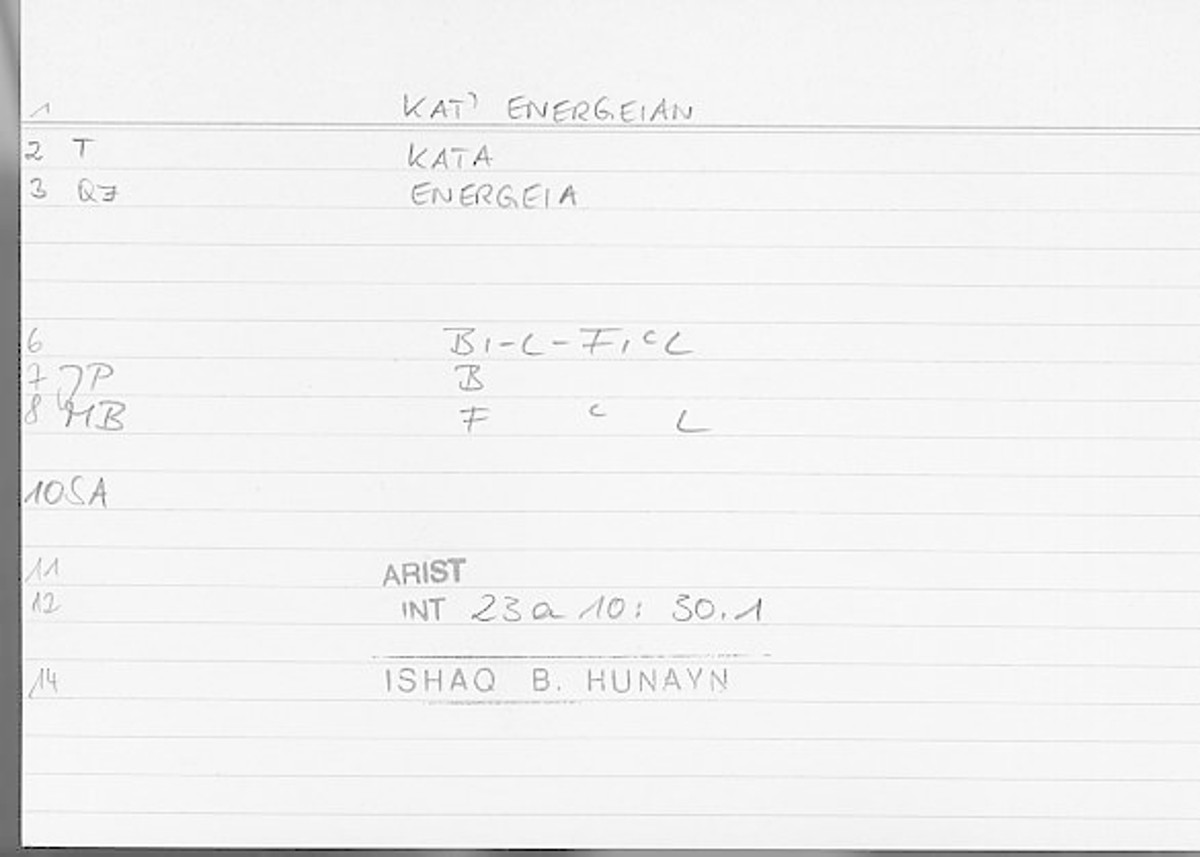 1 KAT' ENERGEIAN
2 T KATA
3 QF ENERGEIA
6 BI-L-FIcL
7 JP B
8 MB F c L
10 SA
11 ARIST
12 INT 23a 10: 30.1
14 ISHAQ B. HUNAYN